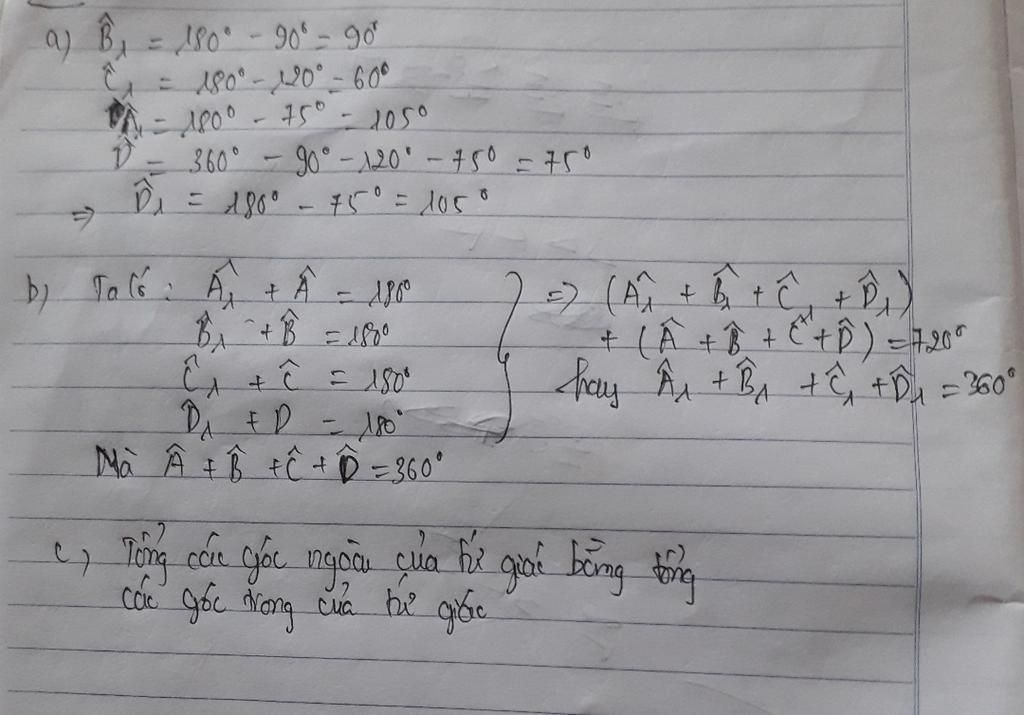 a) B̂₁ = 180° - 90° = 90°
Ĉ₁ = 180° - 120° = 60°
Â₁ = 180° - 75° = 105°
D̂ = 360° - 90° - 120° - 75° = 75°
⇒ D̂₁ = 180° - 75° = 105°
b) Ta có : Â₁ + Â = 180°
B̂₁ + B̂ = 180°
Ĉ₁ + Ĉ = 180°
D̂₁ + D = 180°
⇒ (Â₁ + B̂₁ + Ĉ₁ + D̂₁)
+ (Â + B̂ + Ĉ + D̂) = 720°
hay Â₁ + B̂₁ + Ĉ₁ + D̂₁ = 360°
Mà Â + B̂ + Ĉ + D̂ = 360°
c, Tổng các góc ngoài của tứ giác bằng tổng
các góc trong của tứ giác